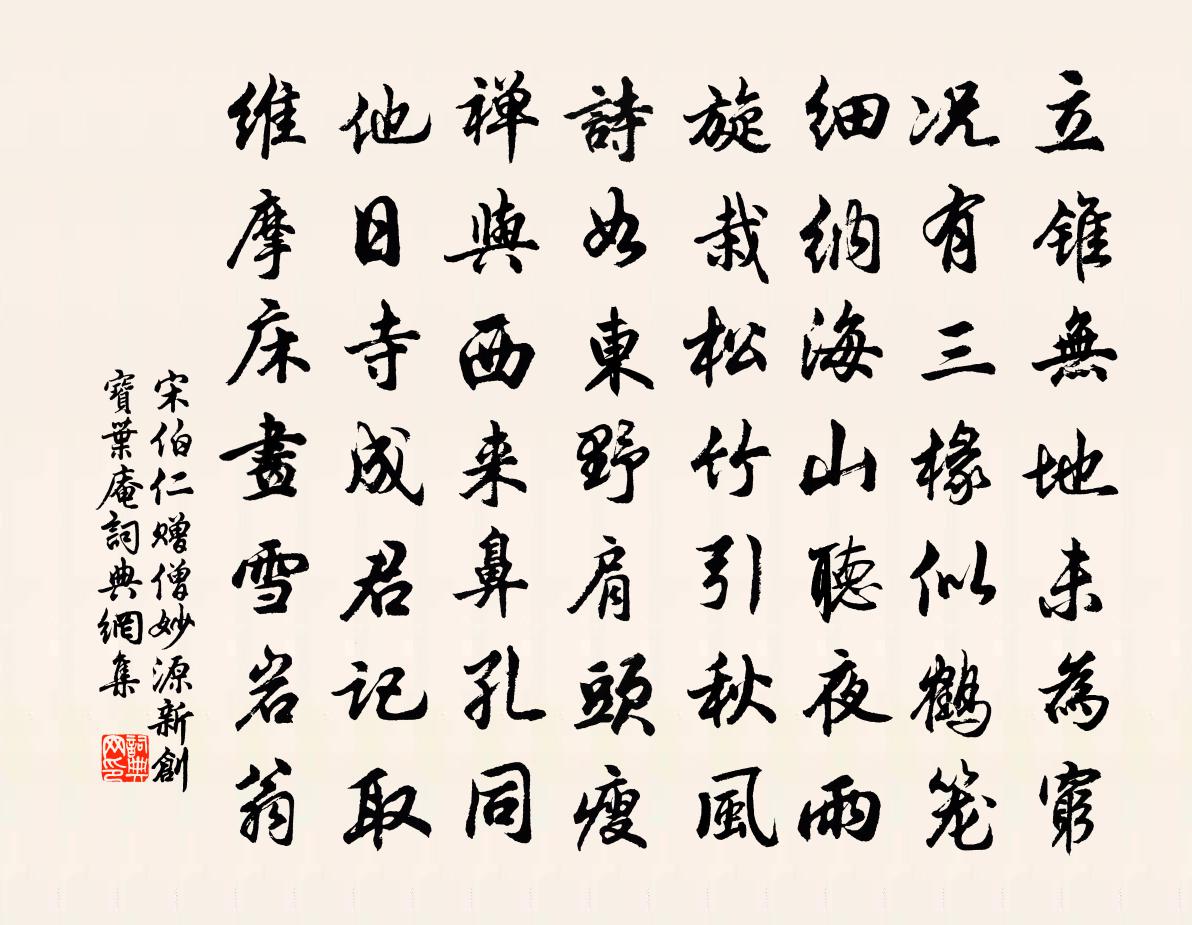 立錐無地未為窮
况有三椽似鶴笼
细纳海山聽夜雨
旋栽松竹引秋風
詩如東野肩頭瘦
禅與西来鼻孔同
他日寺成君记取
维摩床畫雪岩翁
宋伯仁赠僧妙源新創
寶葉庵詞典網集
詞典
网印